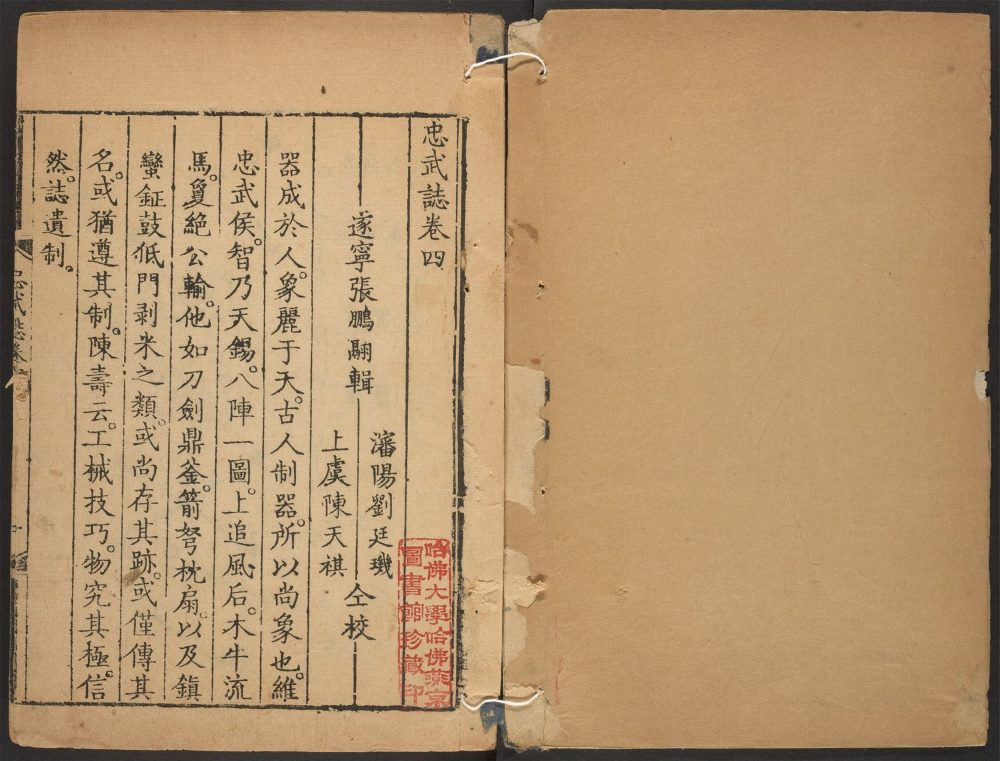 忠武誌卷四
遂寧張鵬翮輯
瀋陽劉廷璣
上虞陳天祺
仝校
器成於人。象麗于天。古人制器。所以尚象也。維
忠武侯。智乃天錫。八陣一圖。上追風后。木牛流
馬。敻絕公輸。他如刀劍鼎釜。箭弩枕扇。以及鎮
蠻鉦鼓。㡳門剥米之類。或尚存其跡。或僅傳其
名。或猶遵其制。陳壽云。工械技巧。物究其極。信
然。誌遺制。
哈佛大學哈佛燕京
圖書館珍藏印
忠武誌卷